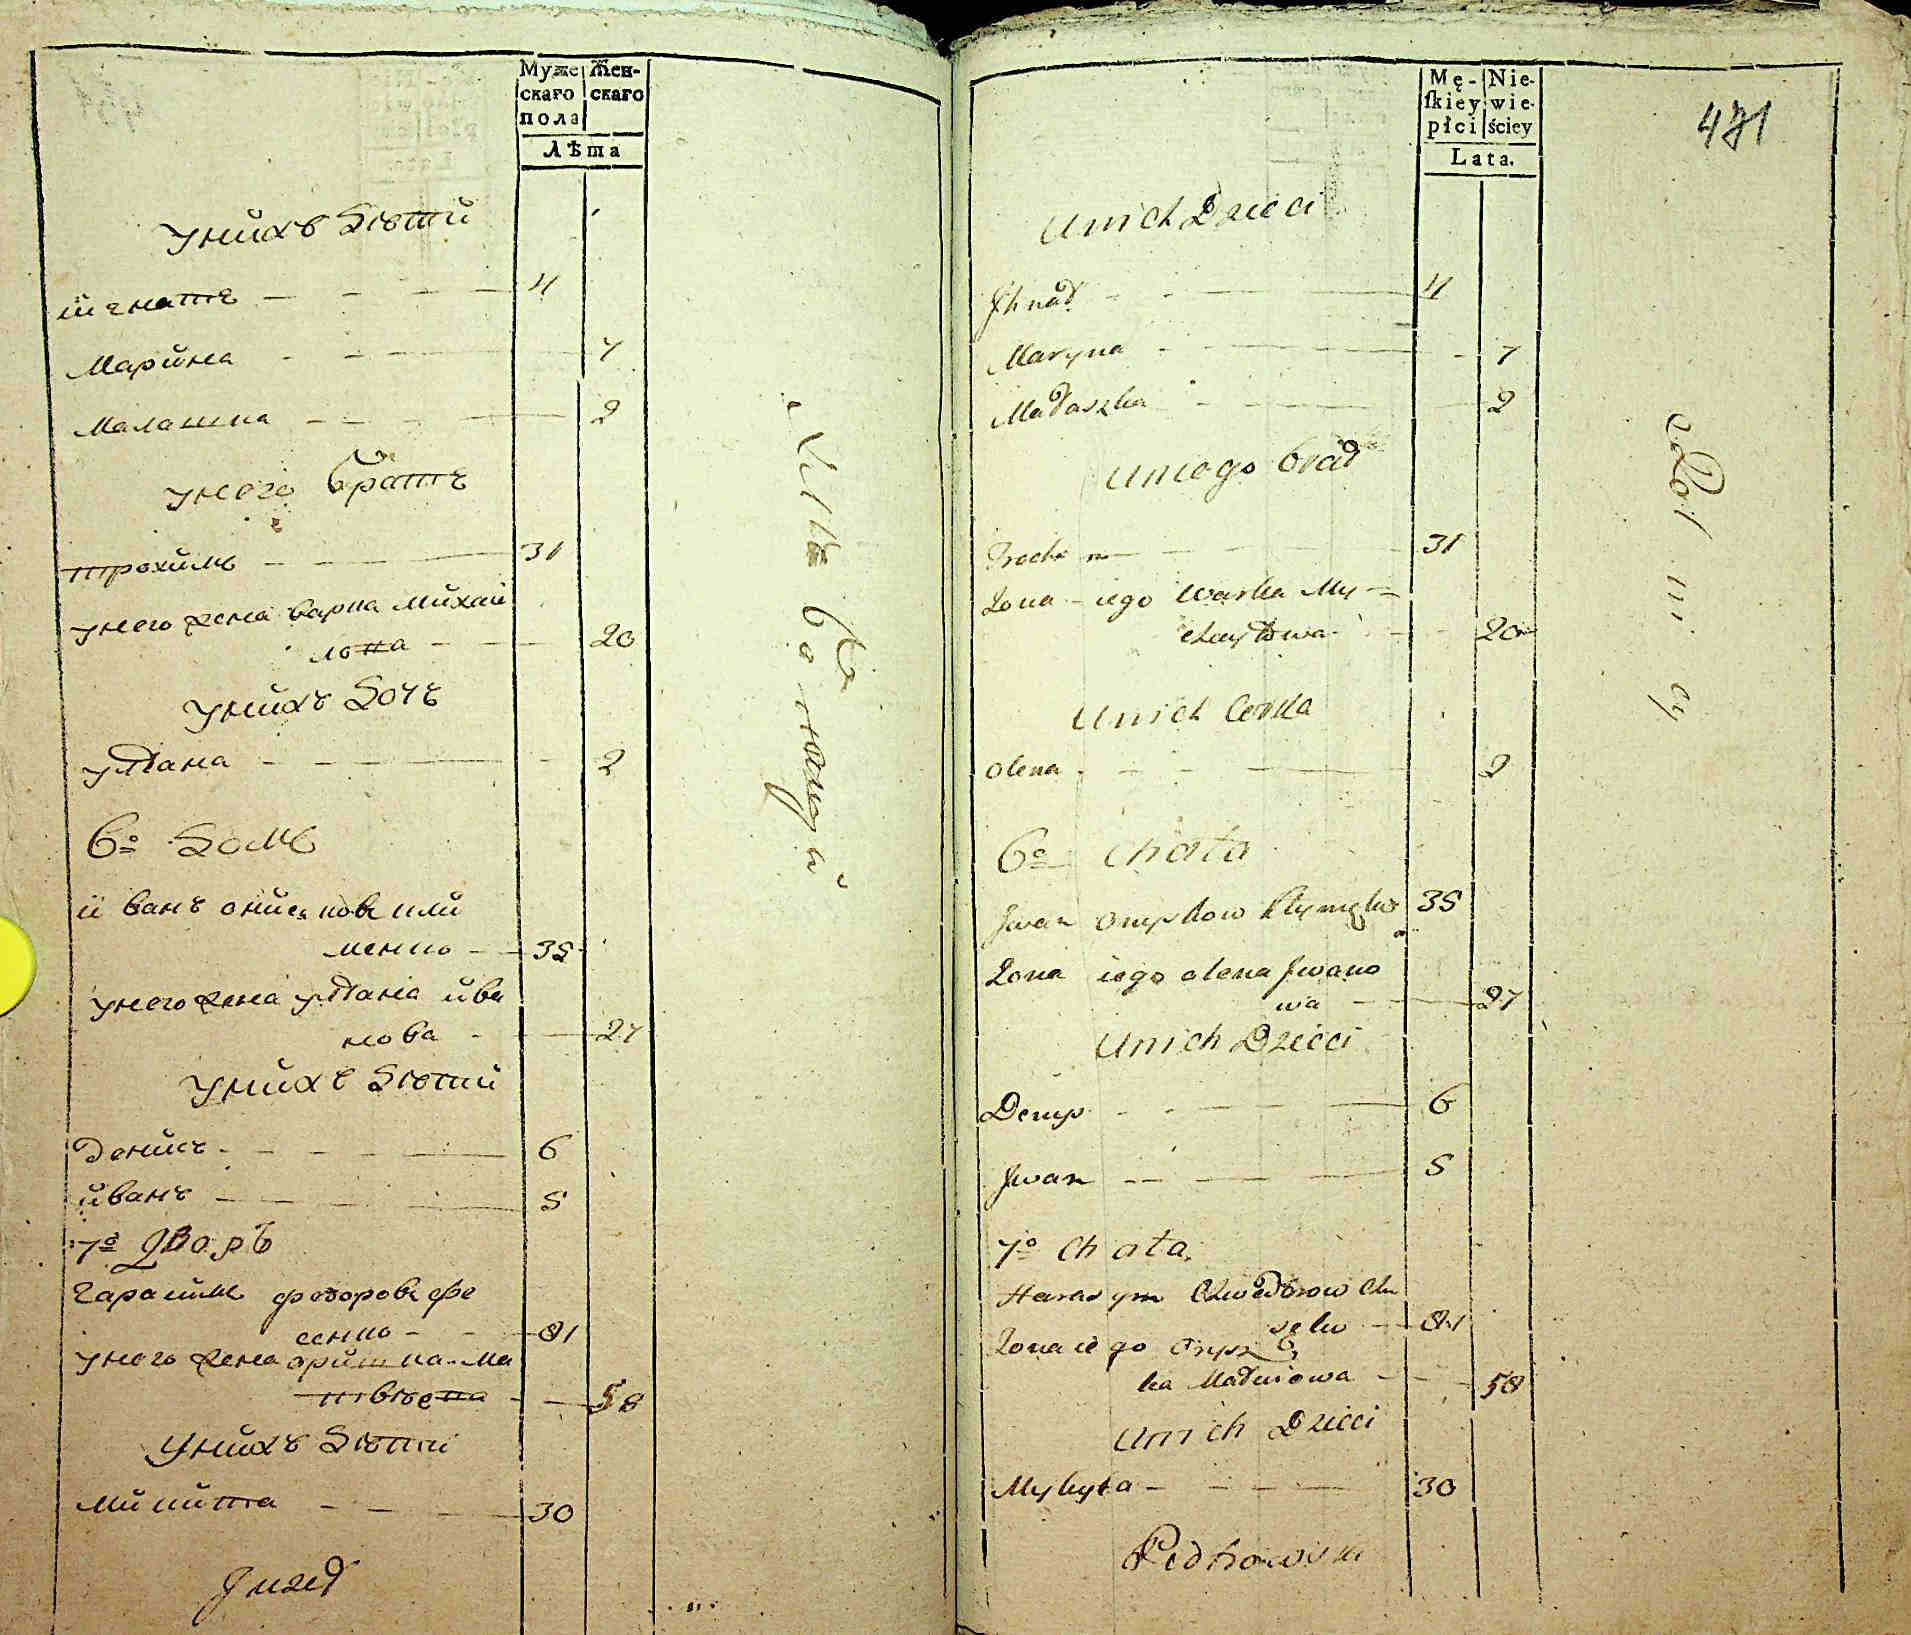 Муже
скаго
пола
Жен-
скаго
Лѣта
Унихъ Дѣти
Игнатъ 4
Марина 7
Малашка 2
Унего братъ
Трохимъ 31
Унего жена Варка Михай
лова 20
Унихъ Дочъ
Уляна 2
6º Домъ
Иванъ Ониськовъ Кли
менко 35
Унего жена Уляна Ива
нова 27
Унихъ Дѣти
Денисъ 6
Иванъ 5
7º Дворъ
Гарасимъ Федоровъ Фе
сенко 81
Унего жена Оришка Ма
твѣева 58
Унихъ Дѣти
Микита 30
Mę-
ſkiey
płci
Nie-
wie-
ściey
Lata.
471
Unich Dzieci
Jhnat 4
Maryna 7
Małaszka 2
Uniego brat
Trochim 31
Zona iego Warka My=
chayłowa 20
Unich Corka
Olena 2
6º Chata
Jwan Onyskow Klymenko 35
Zona iego Olena Jwano
wa 27
Unich Dzieci
Denys 6
Jwan 5
7º Chata
Harasym Chwedorow Chw
senko 81
Zona iego Orysz
ka Matwiowa 58
Unich Dzieci
Mykyta 30